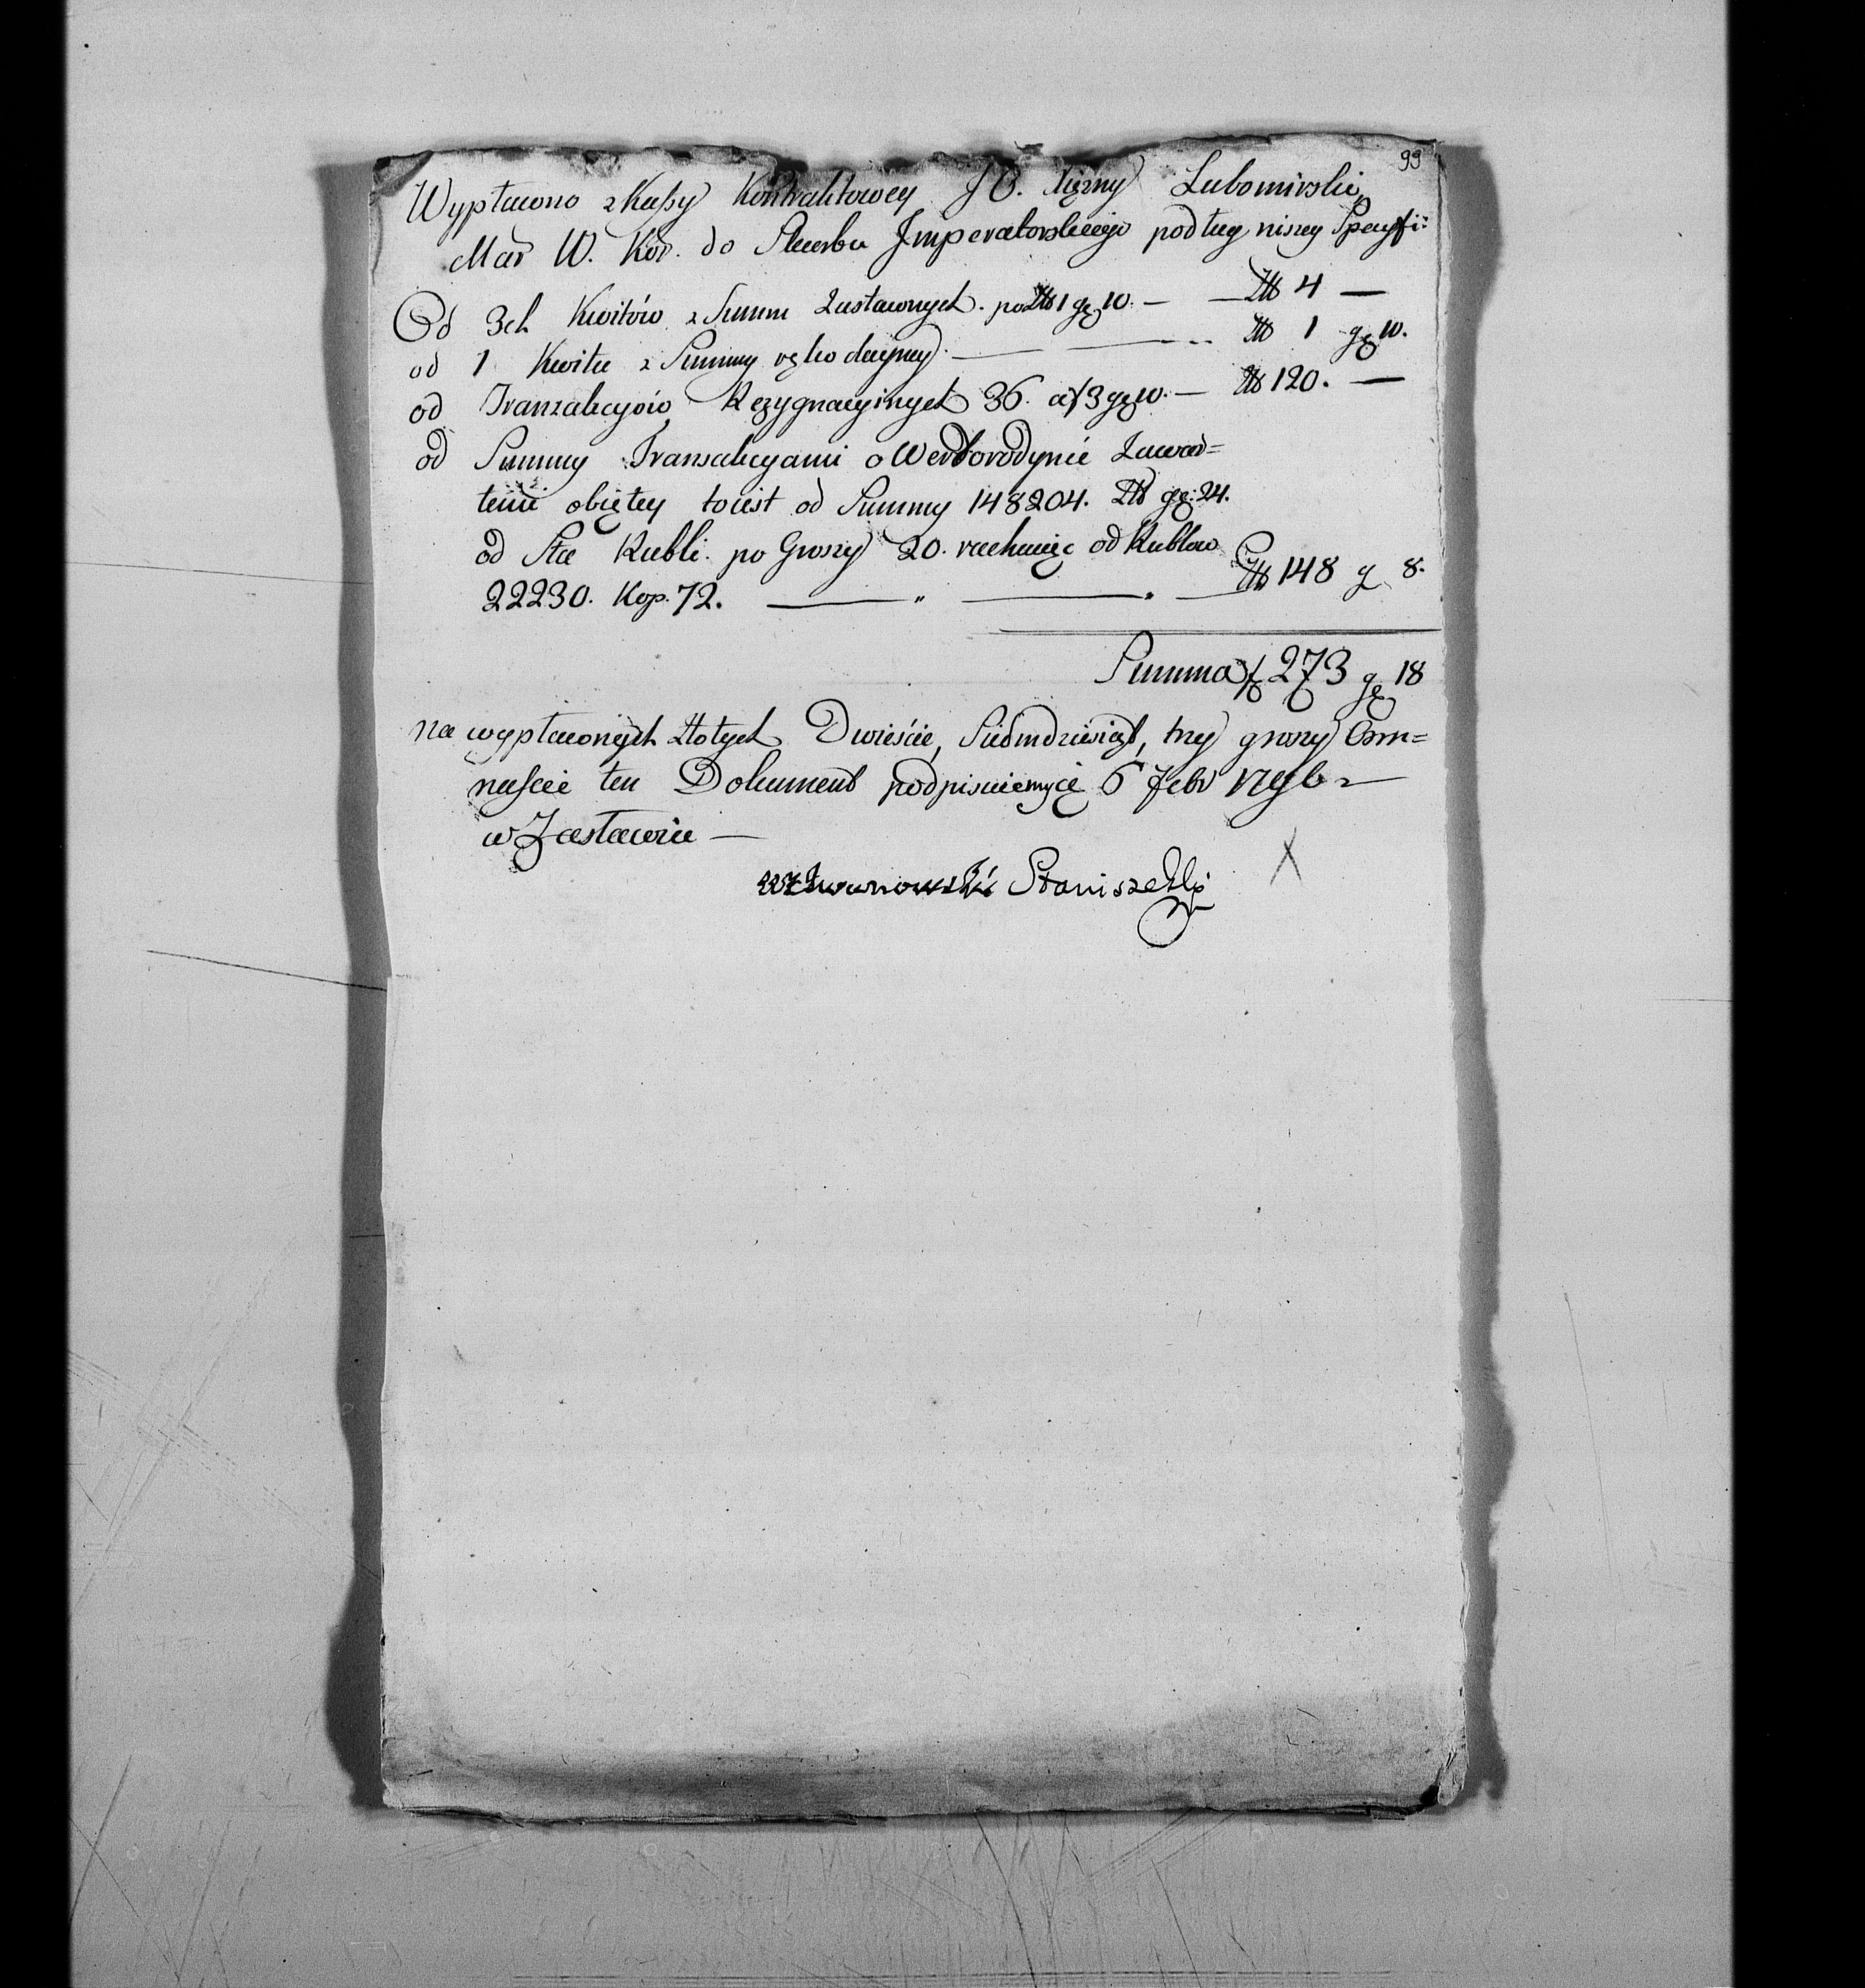 99
Wypłacono z Kassy Kontraktowey J O. Xiężny Lubomirski
Mar W. Kor. do Skarbu Imperatorskiego podług niszey Specyfi:
Od 3ch Kwitów z Summ Zastawnych. po Złł 1 gę 10. — — Złł 4 —
od 1 Kwitu z Summy ręko dayney. — — Złł 1 gę 10.
od Tranzakcyów Rezygnacyinych 36. a f 3 gę 10. — Złł 120. —
od Summy Transakcyami o Werborodynie Zawar=
temi obiętey to iest od Summy 148204. Złł gę: 24.
od Sta Rubli. po Groszy 20. rachuiąc od Rublow
22230. Kop. 72. — " — " — Złł 148 g 8.
Summa f 273 gę 18
na wypłaconych Złotych Dwieście, Siedmdziesiąt, trzy groszy Osm=
naście ten Dokument podpisuiemy 6 Febr
w Zasławiu —
Staniszewski
X